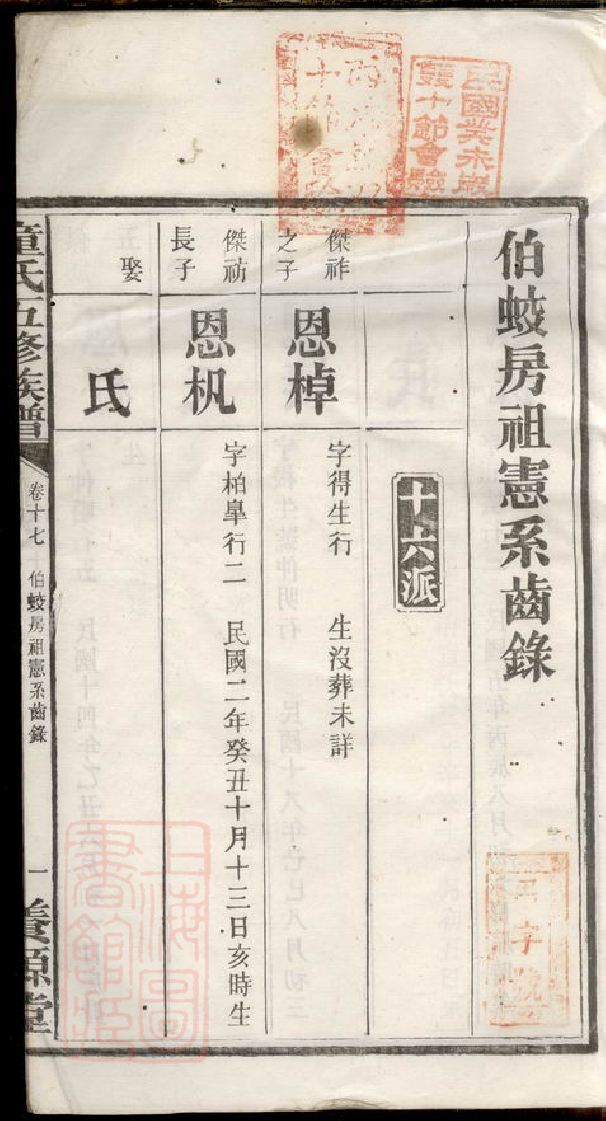 民國癸未歲
雙十節會驗
伯蛟房祖憲系齒錄
十六派
傑祚
之子
恩棹
字得生行 生沒葬未詳
傑祊
長子
恩杋
字柏臯行二 民國二年癸丑十月十三日亥時生
娶
氏
童氏五修族譜
卷十七 伯蛟房祖憲系齒錄
一
養源堂
上海圖
書館藏